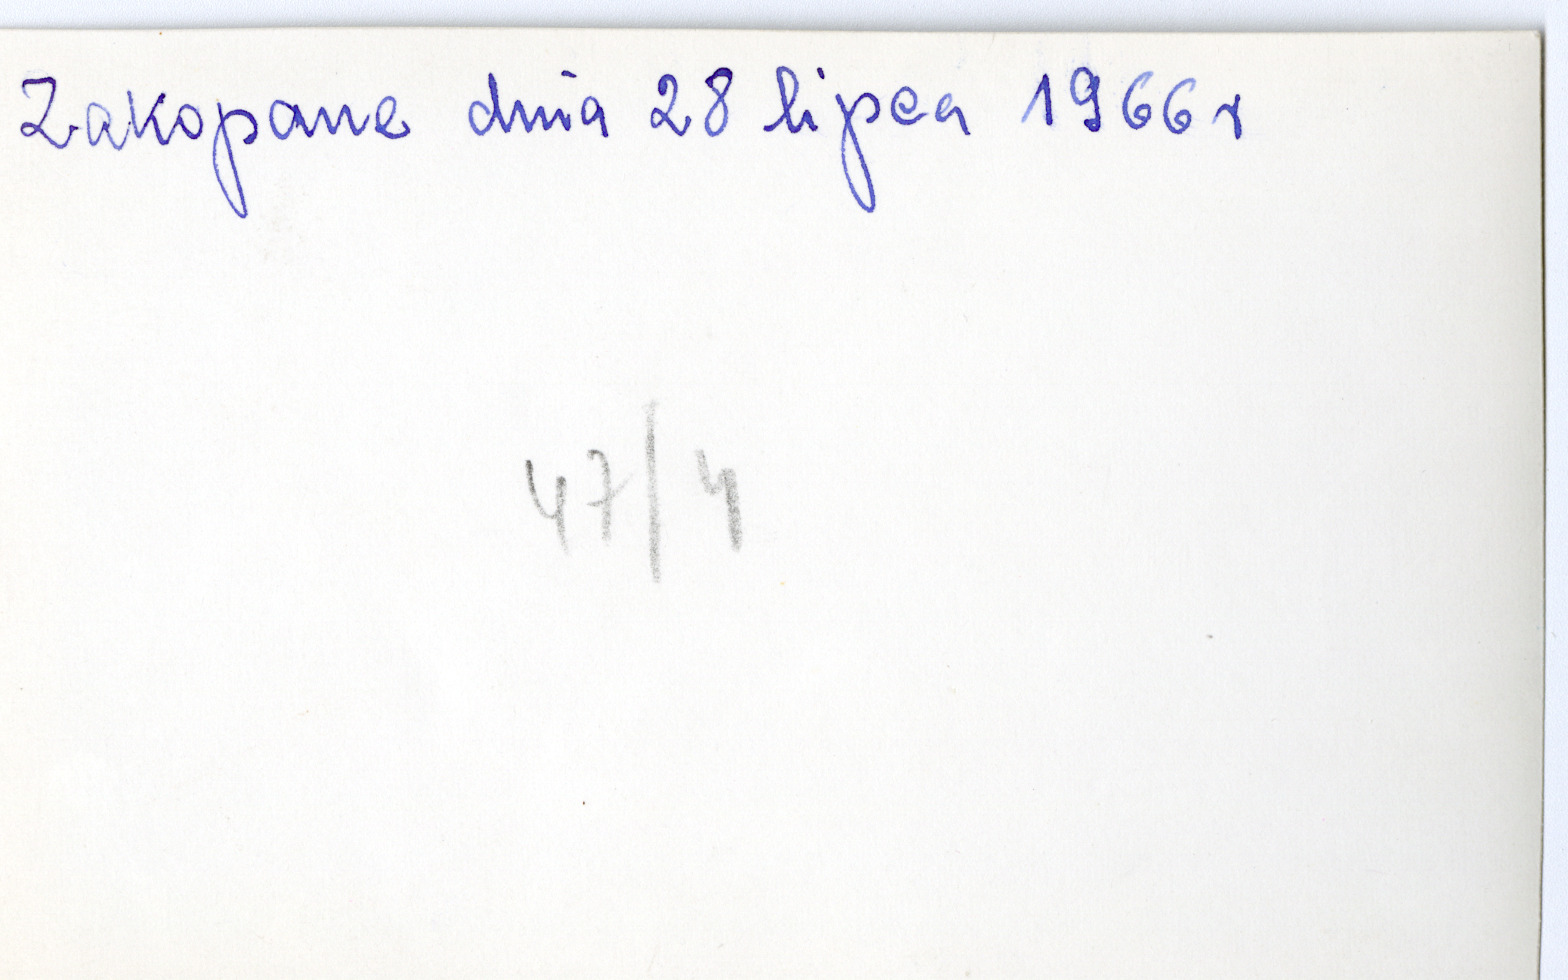 Zakopane dnia 28 lipca 1966 r
47/4